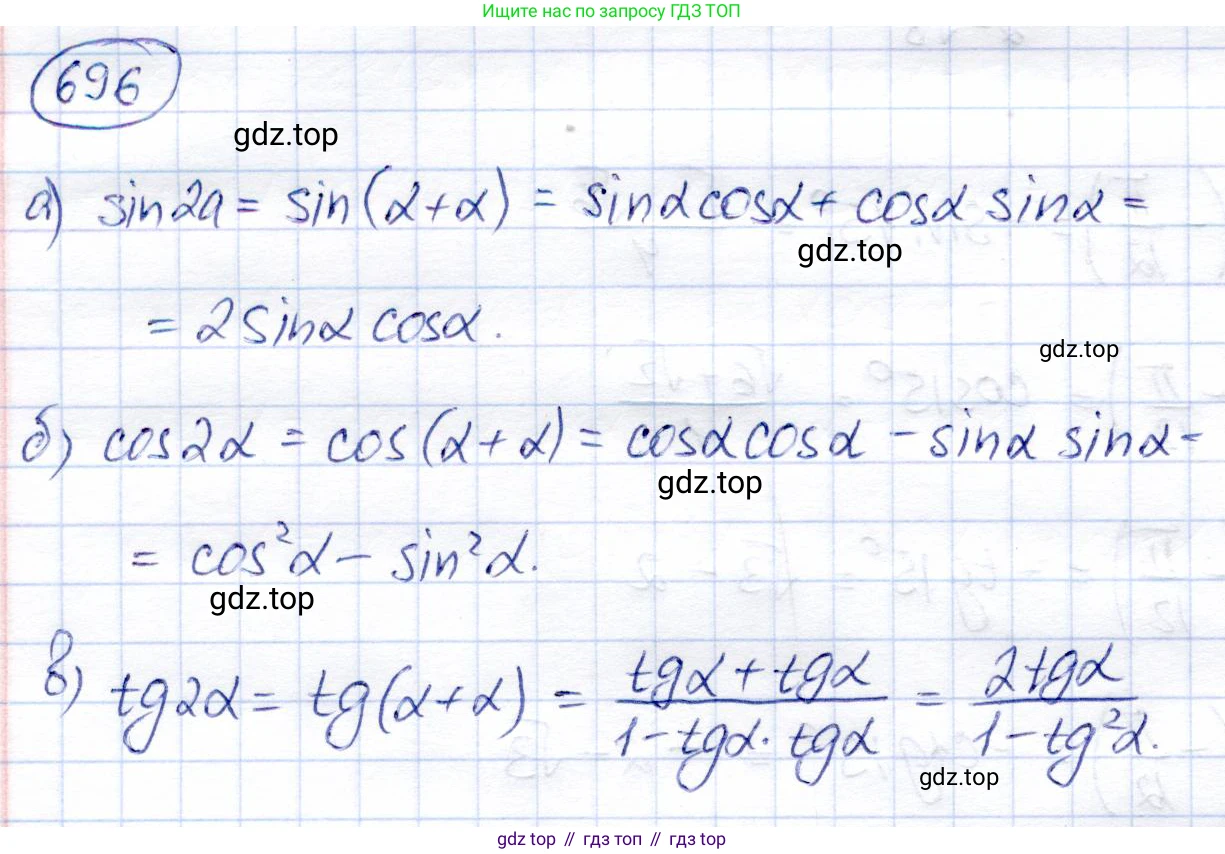 Ищите нас по запросу ГДЗ ТОП
696
gdz.top
а) sin2a = sin(α+α) = sinα cosα + cosα sinα =
gdz.top
= 2sinα cosα.
gdz.top
б) cos2α = cos(α+α) = cosα cosα - sinα sinα =
gdz.top
= cos²α - sin²α.
gdz.top
в) tg2α = tg(α+α) = (tgα + tgα)/(1-tgα·tgα) = 2tgα/(1-tg²α).
gdz.top
gdz top // гдз топ // гдз top